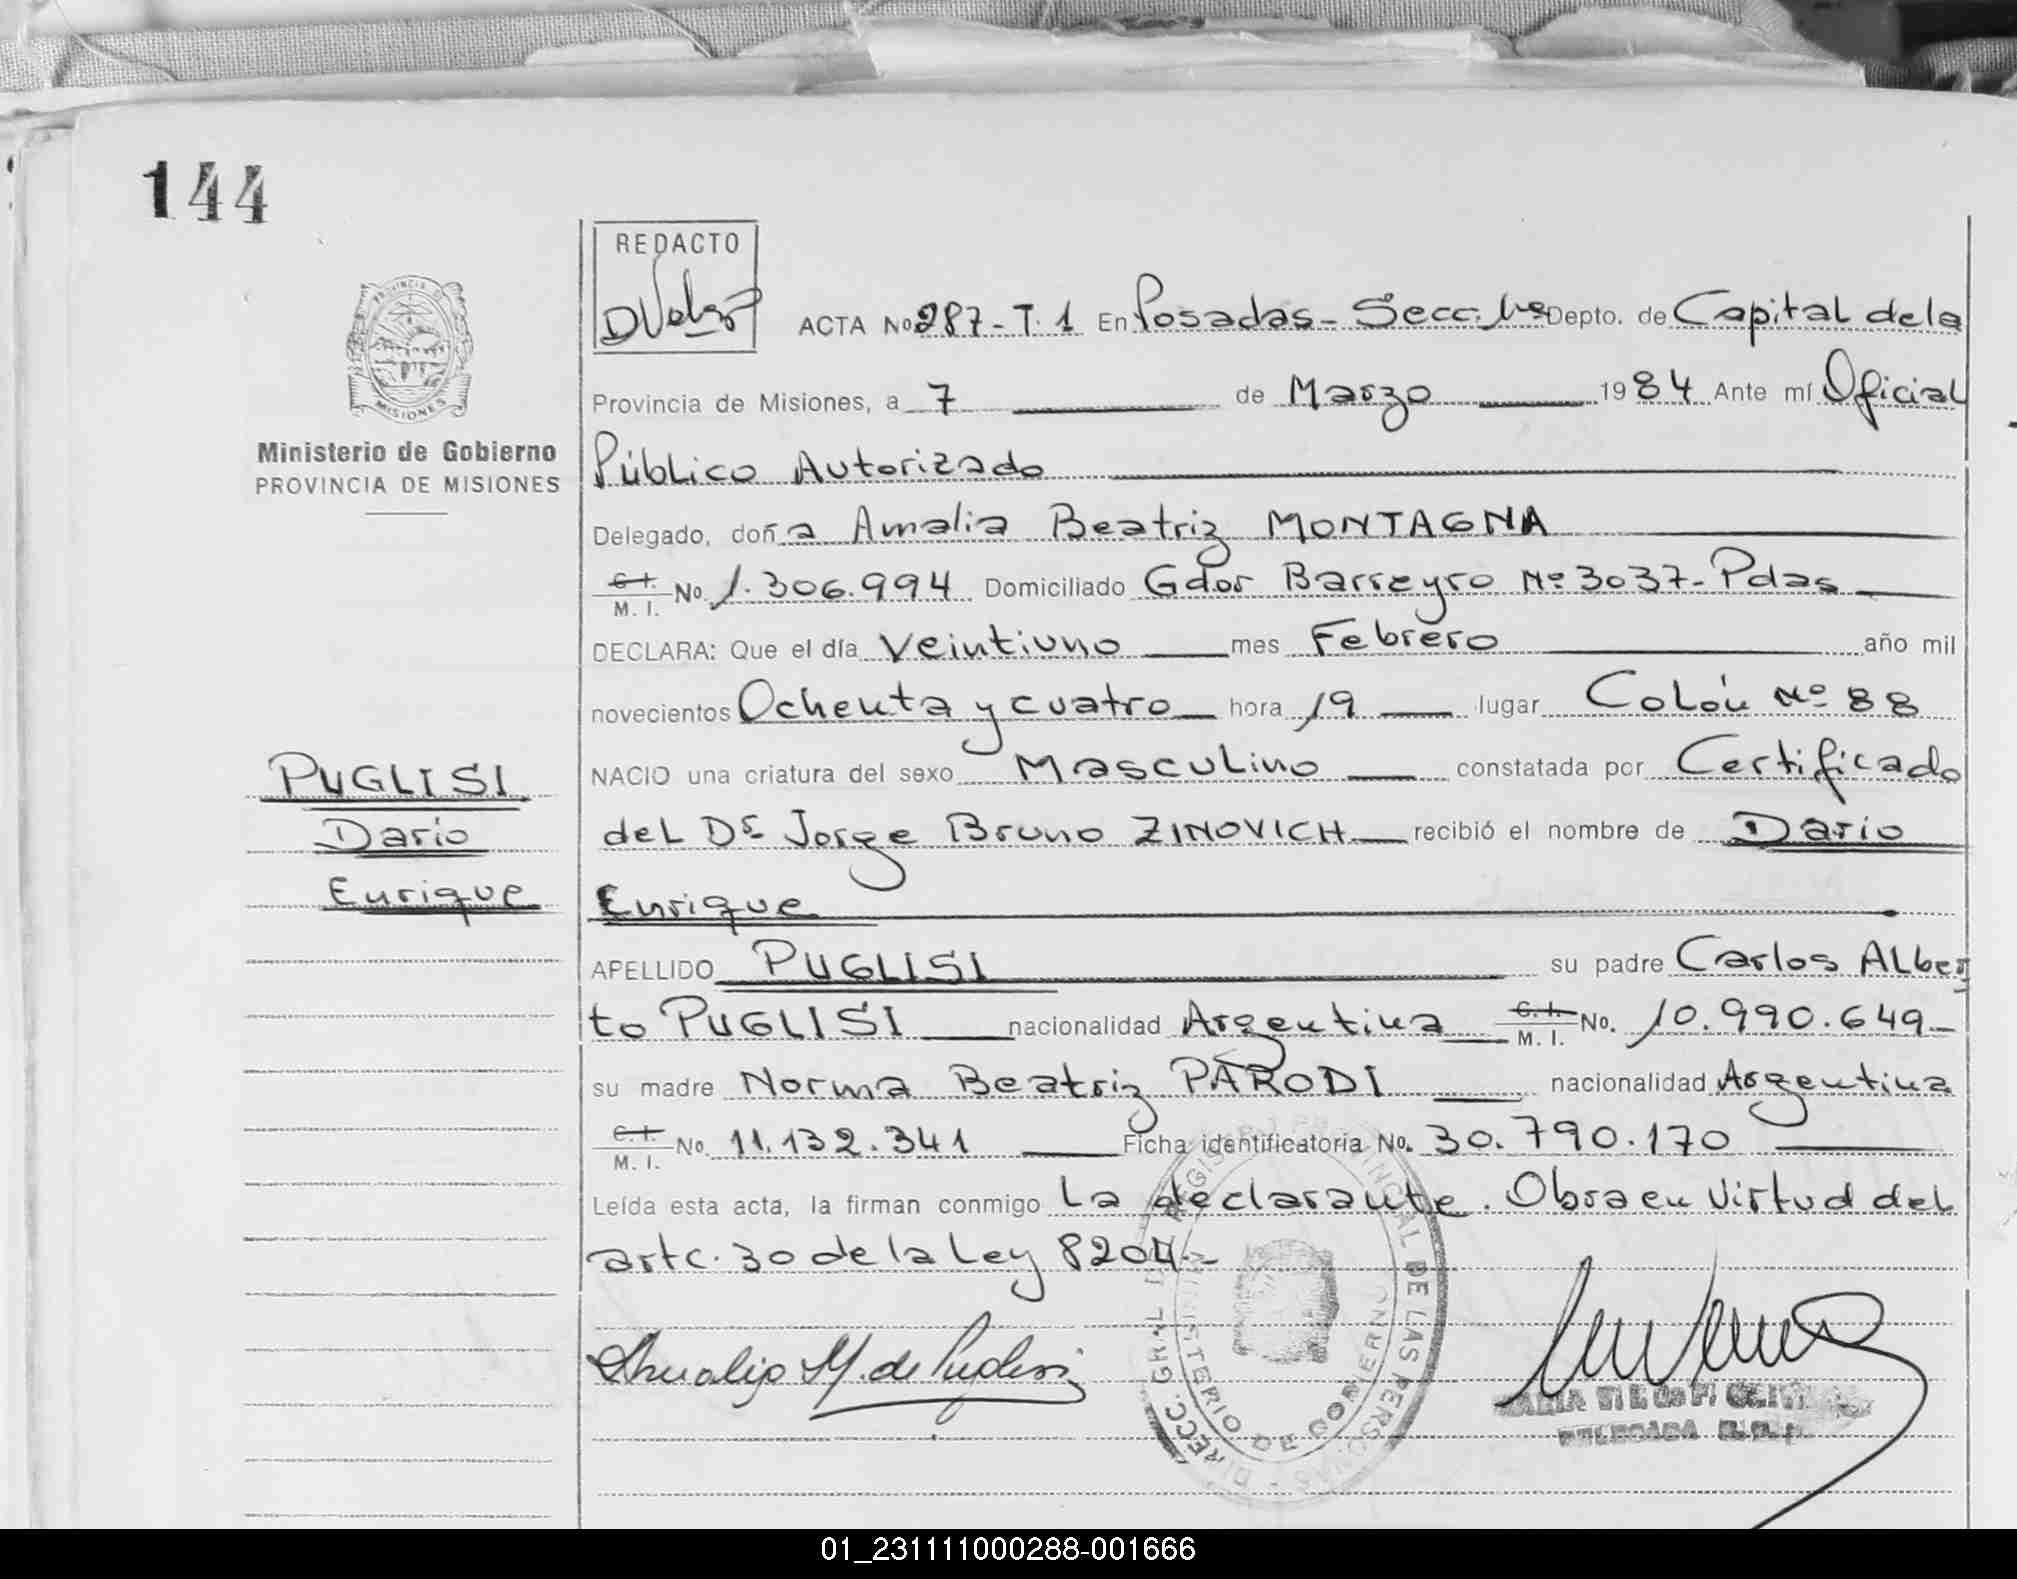 144
REDACTO
PROVINCIA DE
MISIONES
Ministerio de Gobierno
PROVINCIA DE MISIONES
ACTA No 287-T.1 En Posadas - Secc. 1ra Depto. de Capital de la
Provincia de Misiones, a 7 de Marzo 1984 Ante mí Oficial
Público Autorizado
Delegado, doña Amalia Beatriz MONTAGNA
C.I.
M. I. No. 1.306.994 Domiciliado Gdor Barreyro Nº 3037-Pdas
DECLARA: Que el día Veintiuno mes Febrero año mil
novecientos Ochenta y cuatro hora 19 lugar Colón Nº 88
NACIO una criatura del sexo Masculino constatada por Certificado
del Dr Jorge Bruno ZINOVICH recibió el nombre de Dario
Enrique
APELLIDO PUGLISI su padre Carlos Alber
to PUGLISI nacionalidad Argentina C.I. M. I. No. 10.990.649-
su madre Norma Beatriz PARODI nacionalidad Argentina
C.I.
M. I. No. 11.132.341 Ficha identificatoria No. 30.790.170
Leída esta acta, la firman conmigo La declarante. Obra en Virtud del
artc. 30 de la Ley 8204.-
PUGLISI
Dario
Enrique
Amalia M. de Puglisi
DIRECC. GRAL. DEL REGISTRO PROVINCIAL DE LAS PERSONAS
MINISTERIO DE GOBIERNO
DELEGADA
01_231111000288-001666